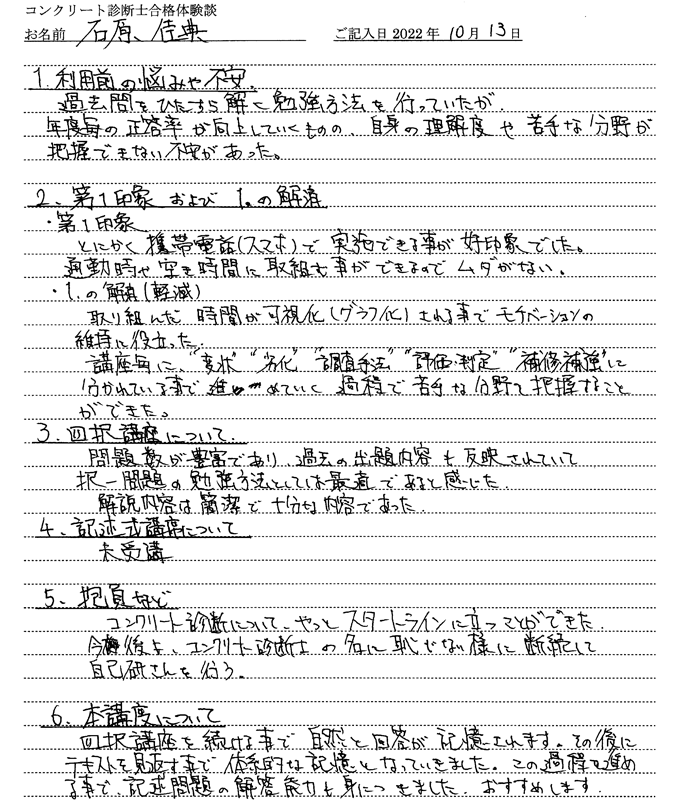 コンクリート診断士合格体験談
お名前 石原 佳典 ご記入日 2022 年 10 月 13 日
1. 利用前の悩みや不安.
過去問をひたすら解く勉強方法を行っていたが
年度毎の正答率が向上していくものの、自身の理解度や苦手な分野が
把握できない不安があった。
2、第1印象 および 1.の解消
・第1印象
とにかく携帯電話(スマホ)で実施できる事が好印象でした。
通勤時や空き時間に取組む事ができるのでムダがない。
・1.の解消(軽減)
取り組んだ時間が可視化(グラフ化)される事でモチベーションの
維持に役立った.
講座毎に、"変状""劣化""調査手法""評価・判定""補修補強"に
分かれている事で進めていく過程で苦手な分野を把握すること
ができた。
3. 四択講座について.
問題数が豊富であり、過去の出題内容も反映されていて
択一問題の勉強方法としては最適であると感じた.
解説内容は簡潔で十分な内容であった.
4、記述式講座について
未受講
5、抱負など
コンクリート診断について、やっとスタートラインに立つことができた.
今後よ、コンクリート診断士の名に恥じない様に断続して
自己研さんを行う。
6、本講座について
四択講座を続ける事で自然と回答が記憶されます。その後に
テキストを見返す事で体系的な記憶となっていきました。この過程を進め
る事で、記述問題の解答能力も身につきました.おすすめします.